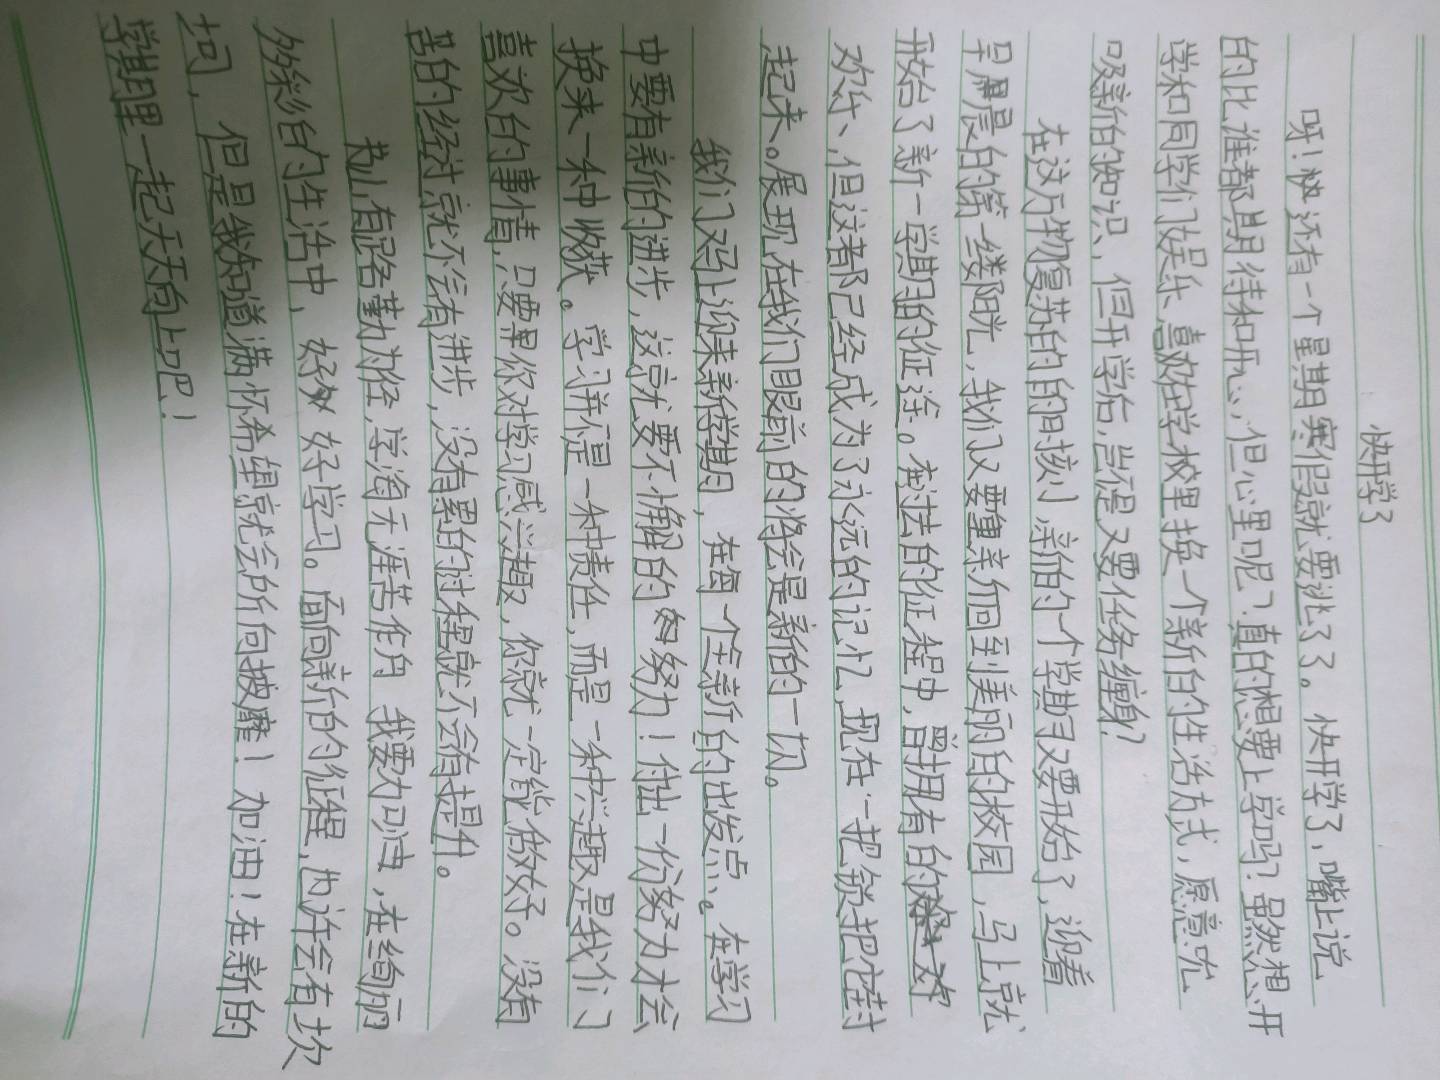 快开学了
呀！快还有一个星期寒假就要没了。快开学了，嘴上说
的比谁都期待和开心，但心里呢？真的想要上学吗？虽然想开
学和同学们娱乐，喜欢在学校里换一个新的生活方式，愿意吮
吸新的知识、但开学后，岂是又要任务缠身？
在这万物复苏的的时刻，新的一个学期又要开始了，迎着
早晨的第一缕阳光，我们又要重新徊到美丽的校园，马上就
开始了新一学期的征途。在过去的征程中，曾拥有的欢
欢乐、但这都已经成为了永远的记忆，现在一把锁把它封
起来。展现在我们眼前的将会是新的一切。
我们又马上迎来新学期，在每一个全新的出发点、。在学习
中要有新的进步，这就要不懈的努力！付出一份努力才会
换来一种收获。学习并不是一种责任，而是一种兴趣是我们
喜欢的事情，只要你对学习感兴趣，你就一定能做好。没有
苦的经过就不会有进步，没有累的过程就不会有提升。
书山有路勤为径，学海无涯苦作舟 我要力口油，在绚丽
多彩的生活中，好好学习。面向新的征程，也许会有坎
坷，但是我知道满怀希望就会所向披靡！加油！在新的
学期里一起天天向上吧！